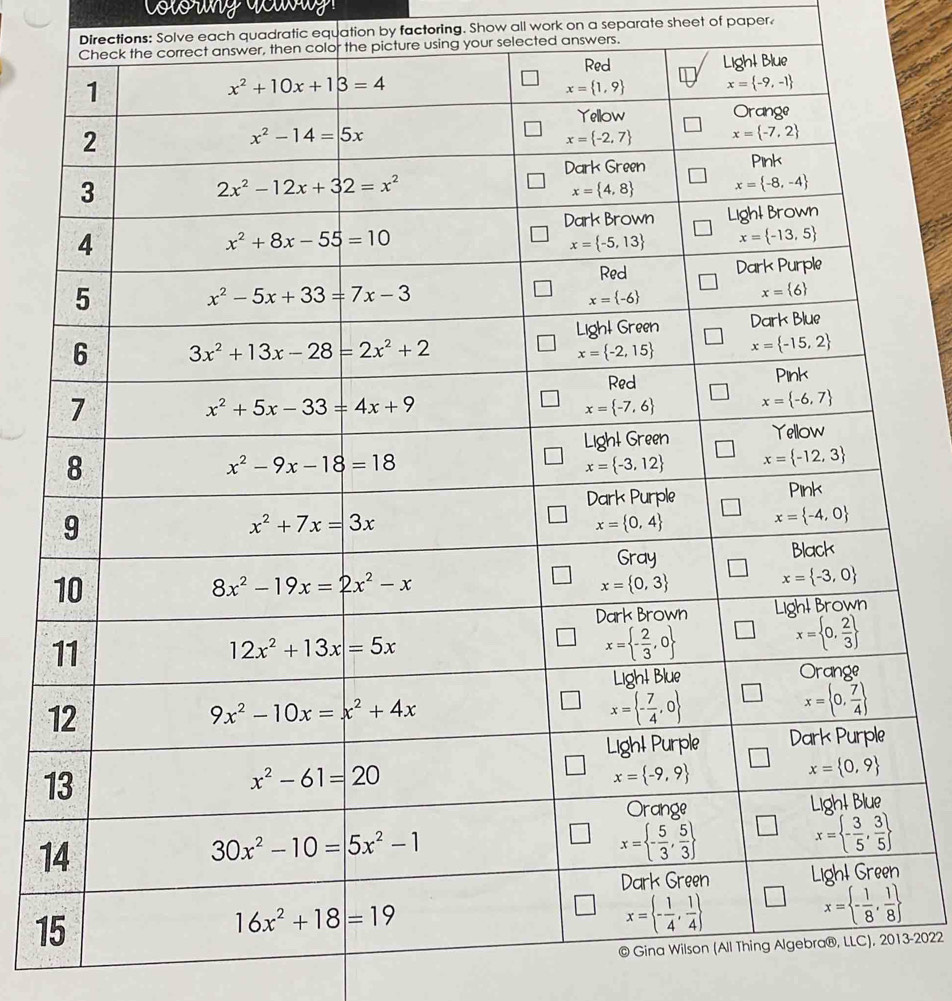 Coloring Activity!
Directions: Solve each quadratic equation by factoring. Show all work on a separate sheet of paper.
Check the correct answer, then color the picture using your selected answers.
1 x² + 10x + 13 = 4 ☐ Red ☐ Light Blue
x = {1, 9} x = {-9, -1}
2 x² − 14 = 5x ☐ Yellow ☐ Orange
x = {-2, 7} x = {-7, 2}
3 2x² − 12x + 32 = x² ☐ Dark Green ☐ Pink
x = {4, 8} x = {-8, -4}
4 x² + 8x − 55 = 10 ☐ Dark Brown ☐ Light Brown
x = {-5, 13} x = {-13, 5}
5 x² − 5x + 33 = 7x − 3 ☐ Red ☐ Dark Purple
x = {-6} x = {6}
6 3x² + 13x − 28 = 2x² + 2 ☐ Light Green ☐ Dark Blue
x = {-2, 15} x = {-15, 2}
7 x² + 5x − 33 = 4x + 9 ☐ Red ☐ Pink
x = {-7, 6} x = {-6, 7}
8 x² − 9x − 18 = 18 ☐ Light Green ☐ Yellow
x = {-3, 12} x = {-12, 3}
9 x² + 7x = 3x ☐ Dark Purple ☐ Pink
x = {0, 4} x = {-4, 0}
10 8x² − 19x = 2x² − x ☐ Gray ☐ Black
x = {0, 3} x = {-3, 0}
11 12x² + 13x = 5x ☐ Dark Brown ☐ Light Brown
x = {-2/3, 0} x = {0, 2/3}
12 9x² − 10x = x² + 4x ☐ Light Blue ☐ Orange
x = {-7/4, 0} x = {0, 7/4}
13 x² − 61 = 20 ☐ Light Purple ☐ Dark Purple
x = {-9, 9} x = {0, 9}
14 30x² − 10 = 5x² − 1 ☐ Orange ☐ Light Blue
x = {-5/3, 5/3} x = {-3/5, 3/5}
15 16x² + 18 = 19 ☐ Dark Green ☐ Light Green
x = {-1/4, 1/4} x = {-1/8, 1/8}
© Gina Wilson (All Thing Algebra®, LLC), 2013-2022